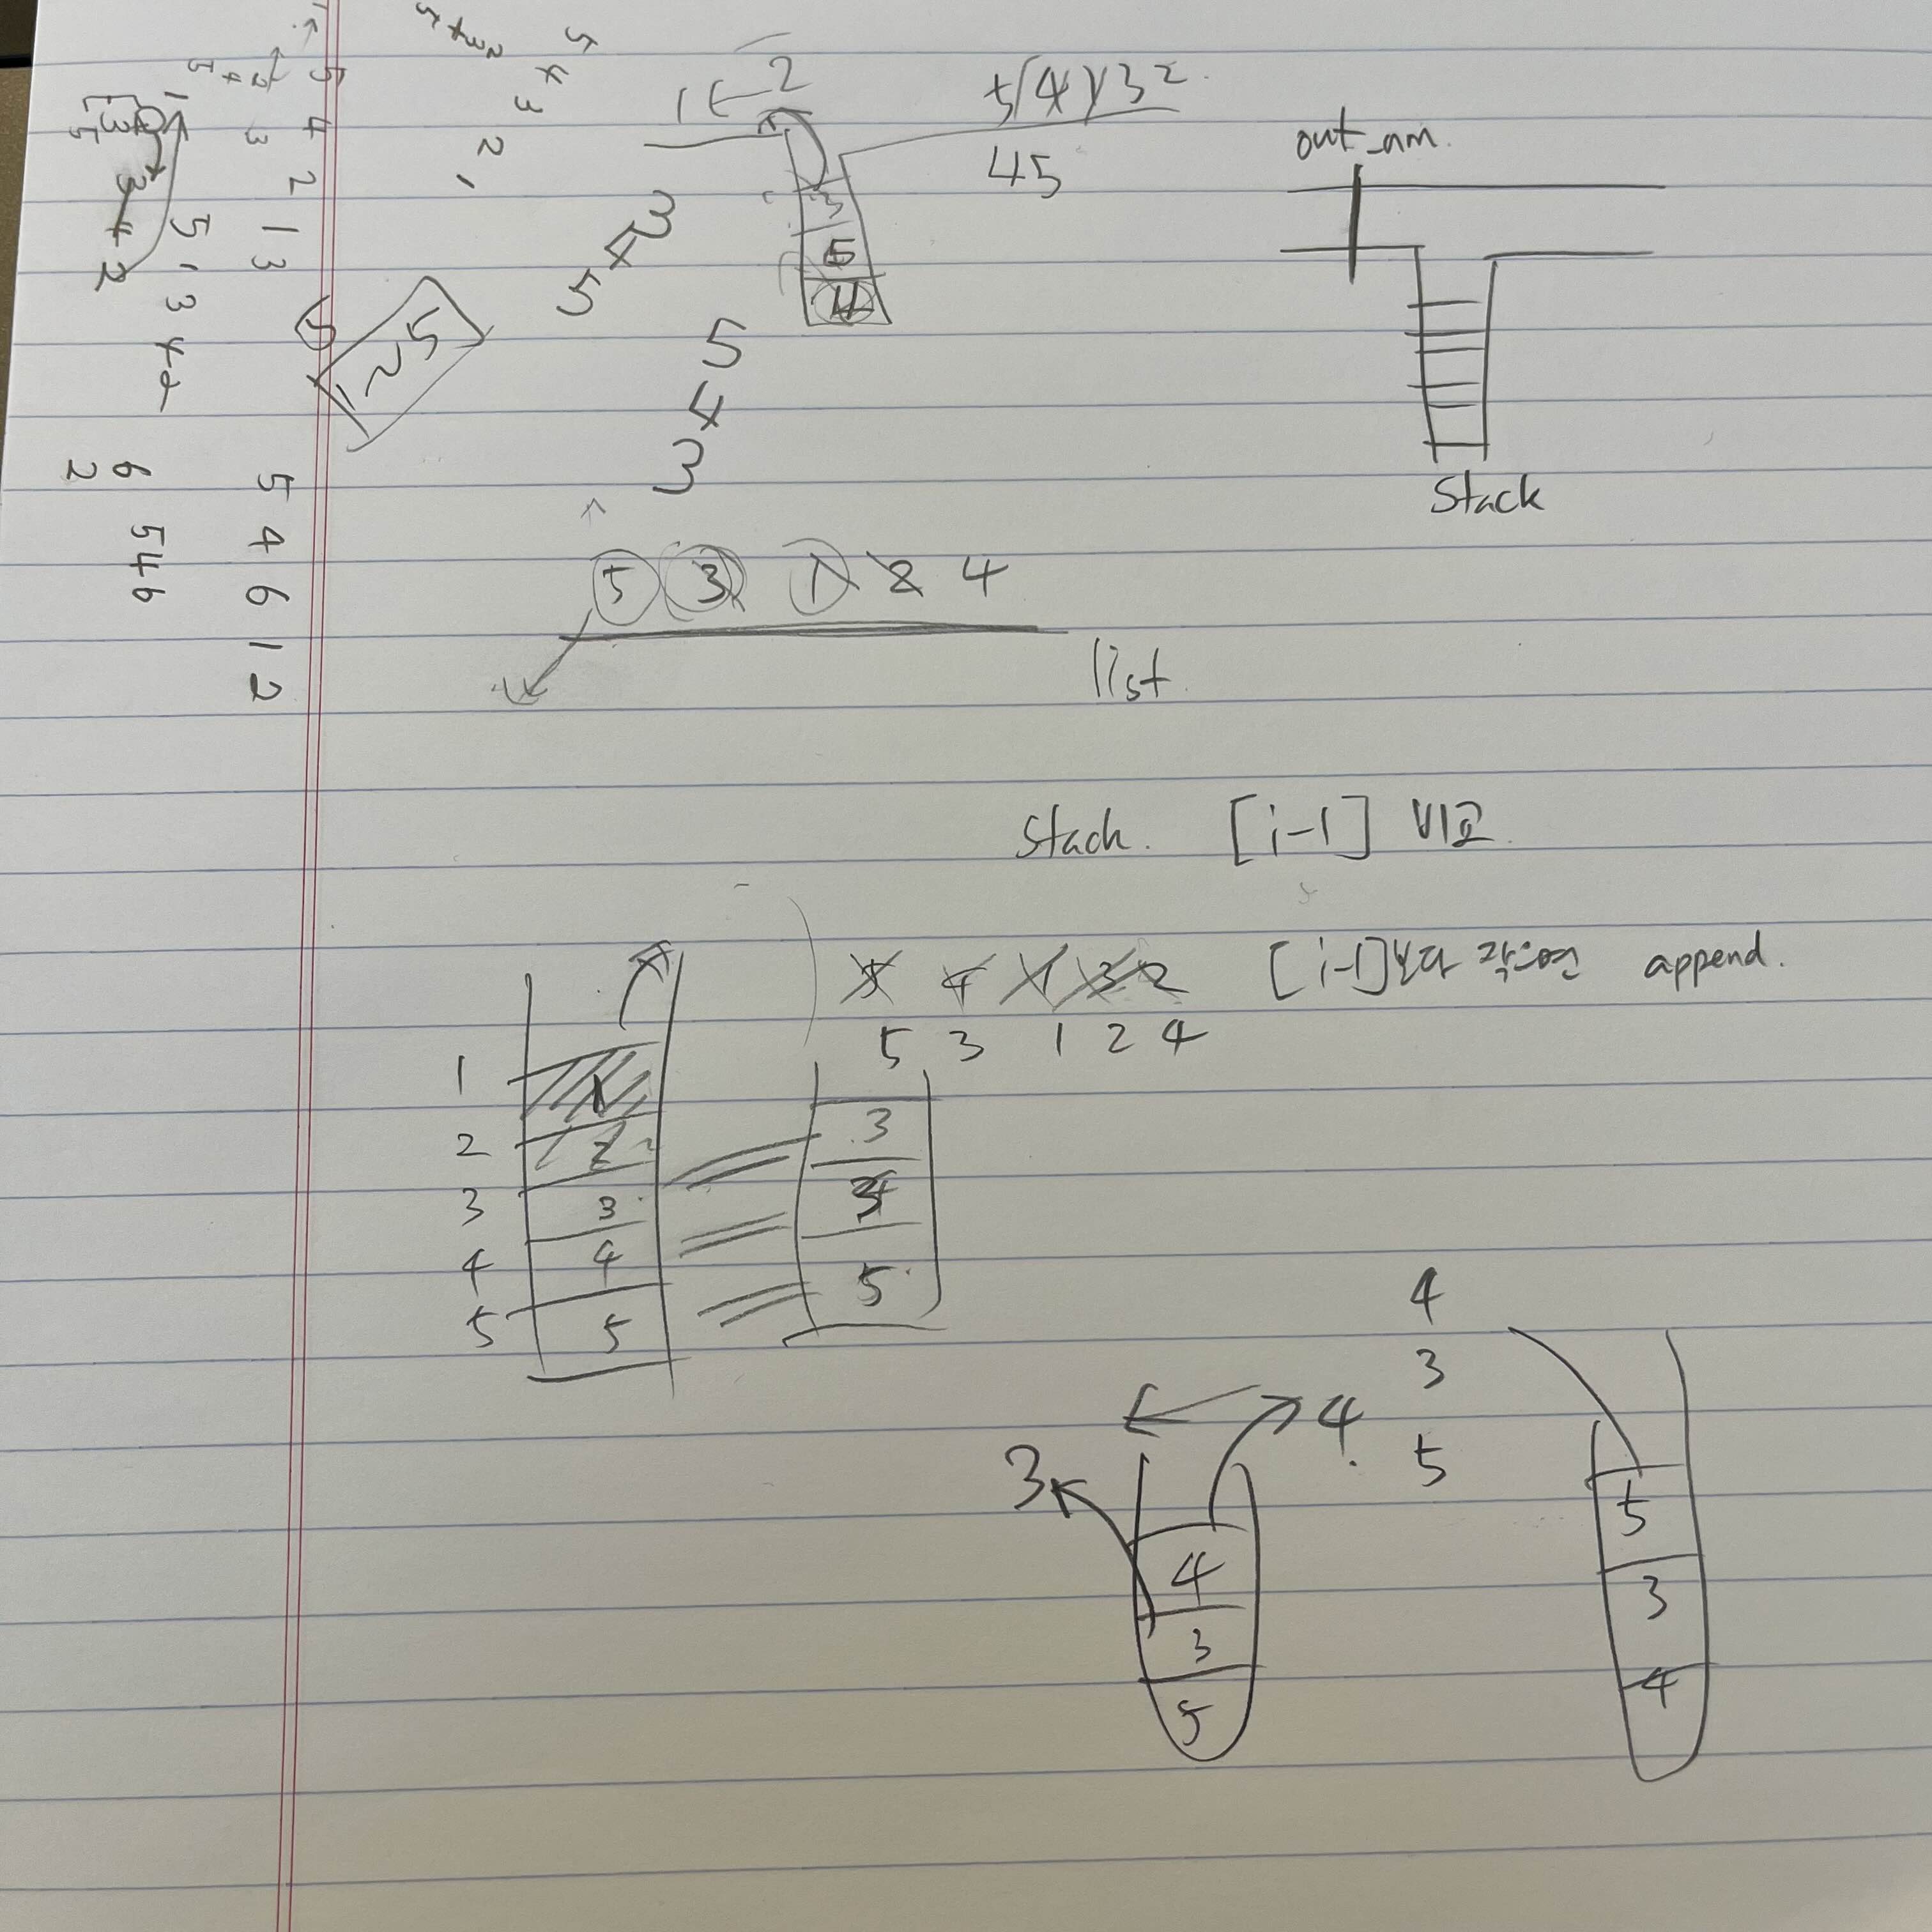 1 ← 2
5 (4) 1 3 2
45
out_arr.
3
4
5
5
4
3
2
1
3
5
4
1 ~ 5
5
4
3
Stack
5 3 1 2 4
list
5 4 2 1 3
5 1 3 4 2
3 4 2
5 4 6 1 2
5 4 6
6
2
Stack. [i-1] 비교
5 4 1 3 2 [i-1]보다 작으면 append.
5 3 1 2 4
1 1
2 2
3 3
4 4
5 5
3
5
4
3
5
3
4
4
3
5
5
3
4